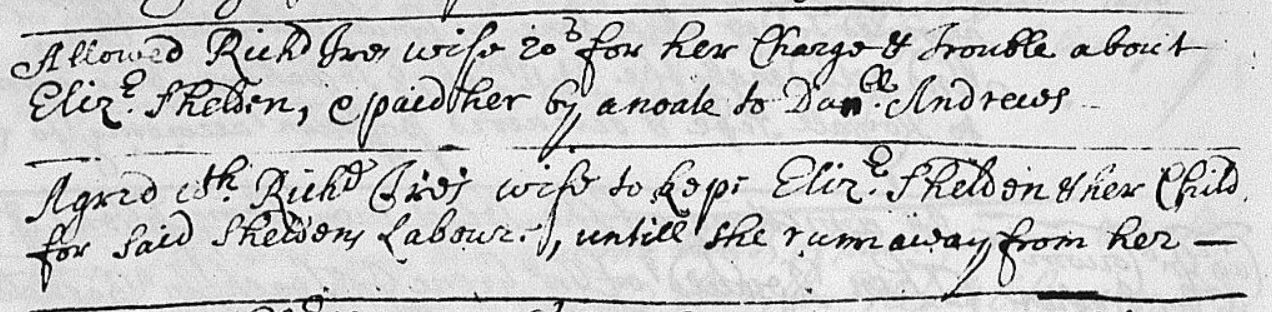 Allowed Richd Ives wife 20s for her Charge & Trouble about
Elizae. Shelden, & paid her by anoate to Danll. Andrews
Agred wth. Richd Ives wife to kepe Elizae. Shelden & her Child
for said Sheldens Labour, untill she runn away from her —